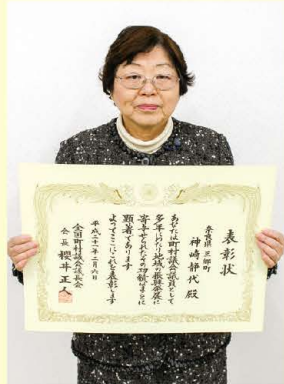 表彰状
奈良県 三郷町
神崎静代 殿
あなたは町村議会議員として
多年にわたり地域の振興発展に
寄与せられたその功績はまことに
顕著であります
よってここにこれを表彰します
平成二十一年二月六日
全国町村議会議長会
会長 櫻井正人